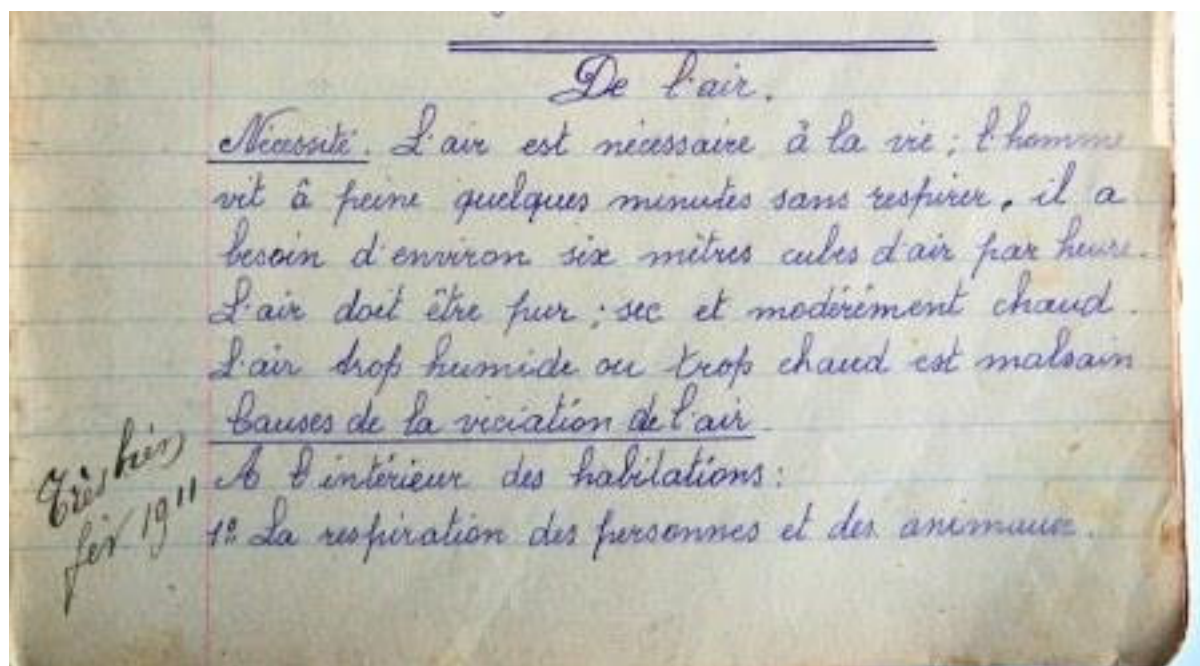 De l'air.
Nécessité. L'air est nécessaire à la vie ; l'homme
vit à peine quelques minutes sans respirer, il a
besoin d'environ six mètres cubes d'air par heure.
L'air doit être pur ; sec et modérément chaud.
L'air trop humide ou trop chaud est malsain
Causes de la viciation de l'air.
A l'intérieur des habitations :
Très bien
fév 1911
1º La respiration des personnes et des animaux.